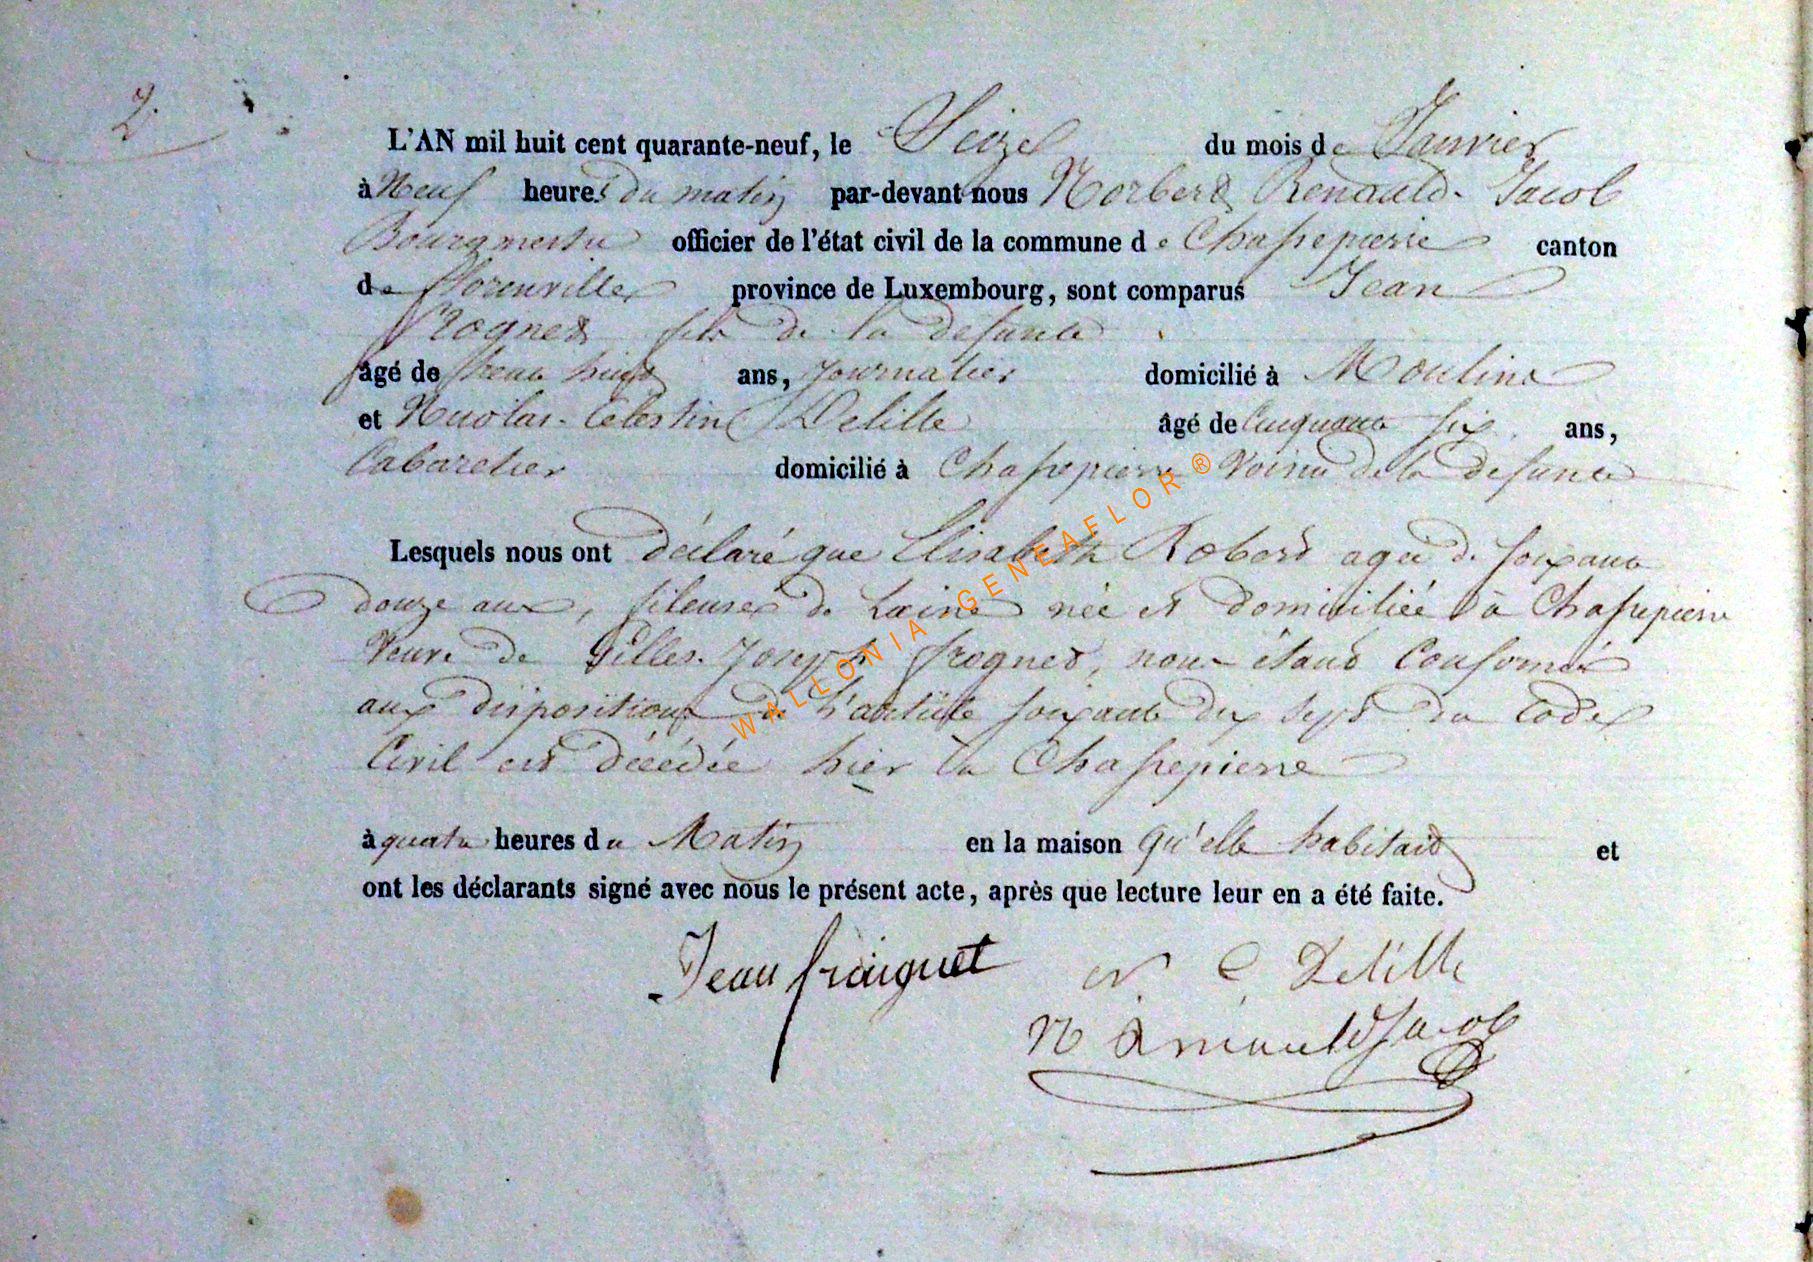 2
L'AN mil huit cent quarante-neuf, le Seize du mois de Janvier
à Neuf heures du matin par-devant nous Norbert Renauld Jacob
Bourgmestre officier de l'état civil de la commune de Chassepierre canton
de florenville province de Luxembourg, sont comparus Jean
frognet fils de la defunte
âgé de trente huit ans, Journalier domicilié à Moulins
et Nicolas Celestin Delille âgé de Cinquante six ans,
Cabaretier domicilié à Chassepierre Voisin de la defunte
Lesquels nous ont déclaré que Elisabeth Robert agée de soixante
douze ans, fileuse de Laine née et domiciliée à Chassepierre
Veuve de Gilles Joseph frognet, nous étant Conformé
aux dispositions de L'article soixante dix sept du Code
Civil est décédée hier à Chassepierre
à quatre heures du Matin en la maison qu'elle habitait et
ont les déclarants signé avec nous le présent acte, après que lecture leur en a été faite.
Jean fraiguet N C Delille
N Renauld Jacob
WALLONIA GENEAFLOR ®